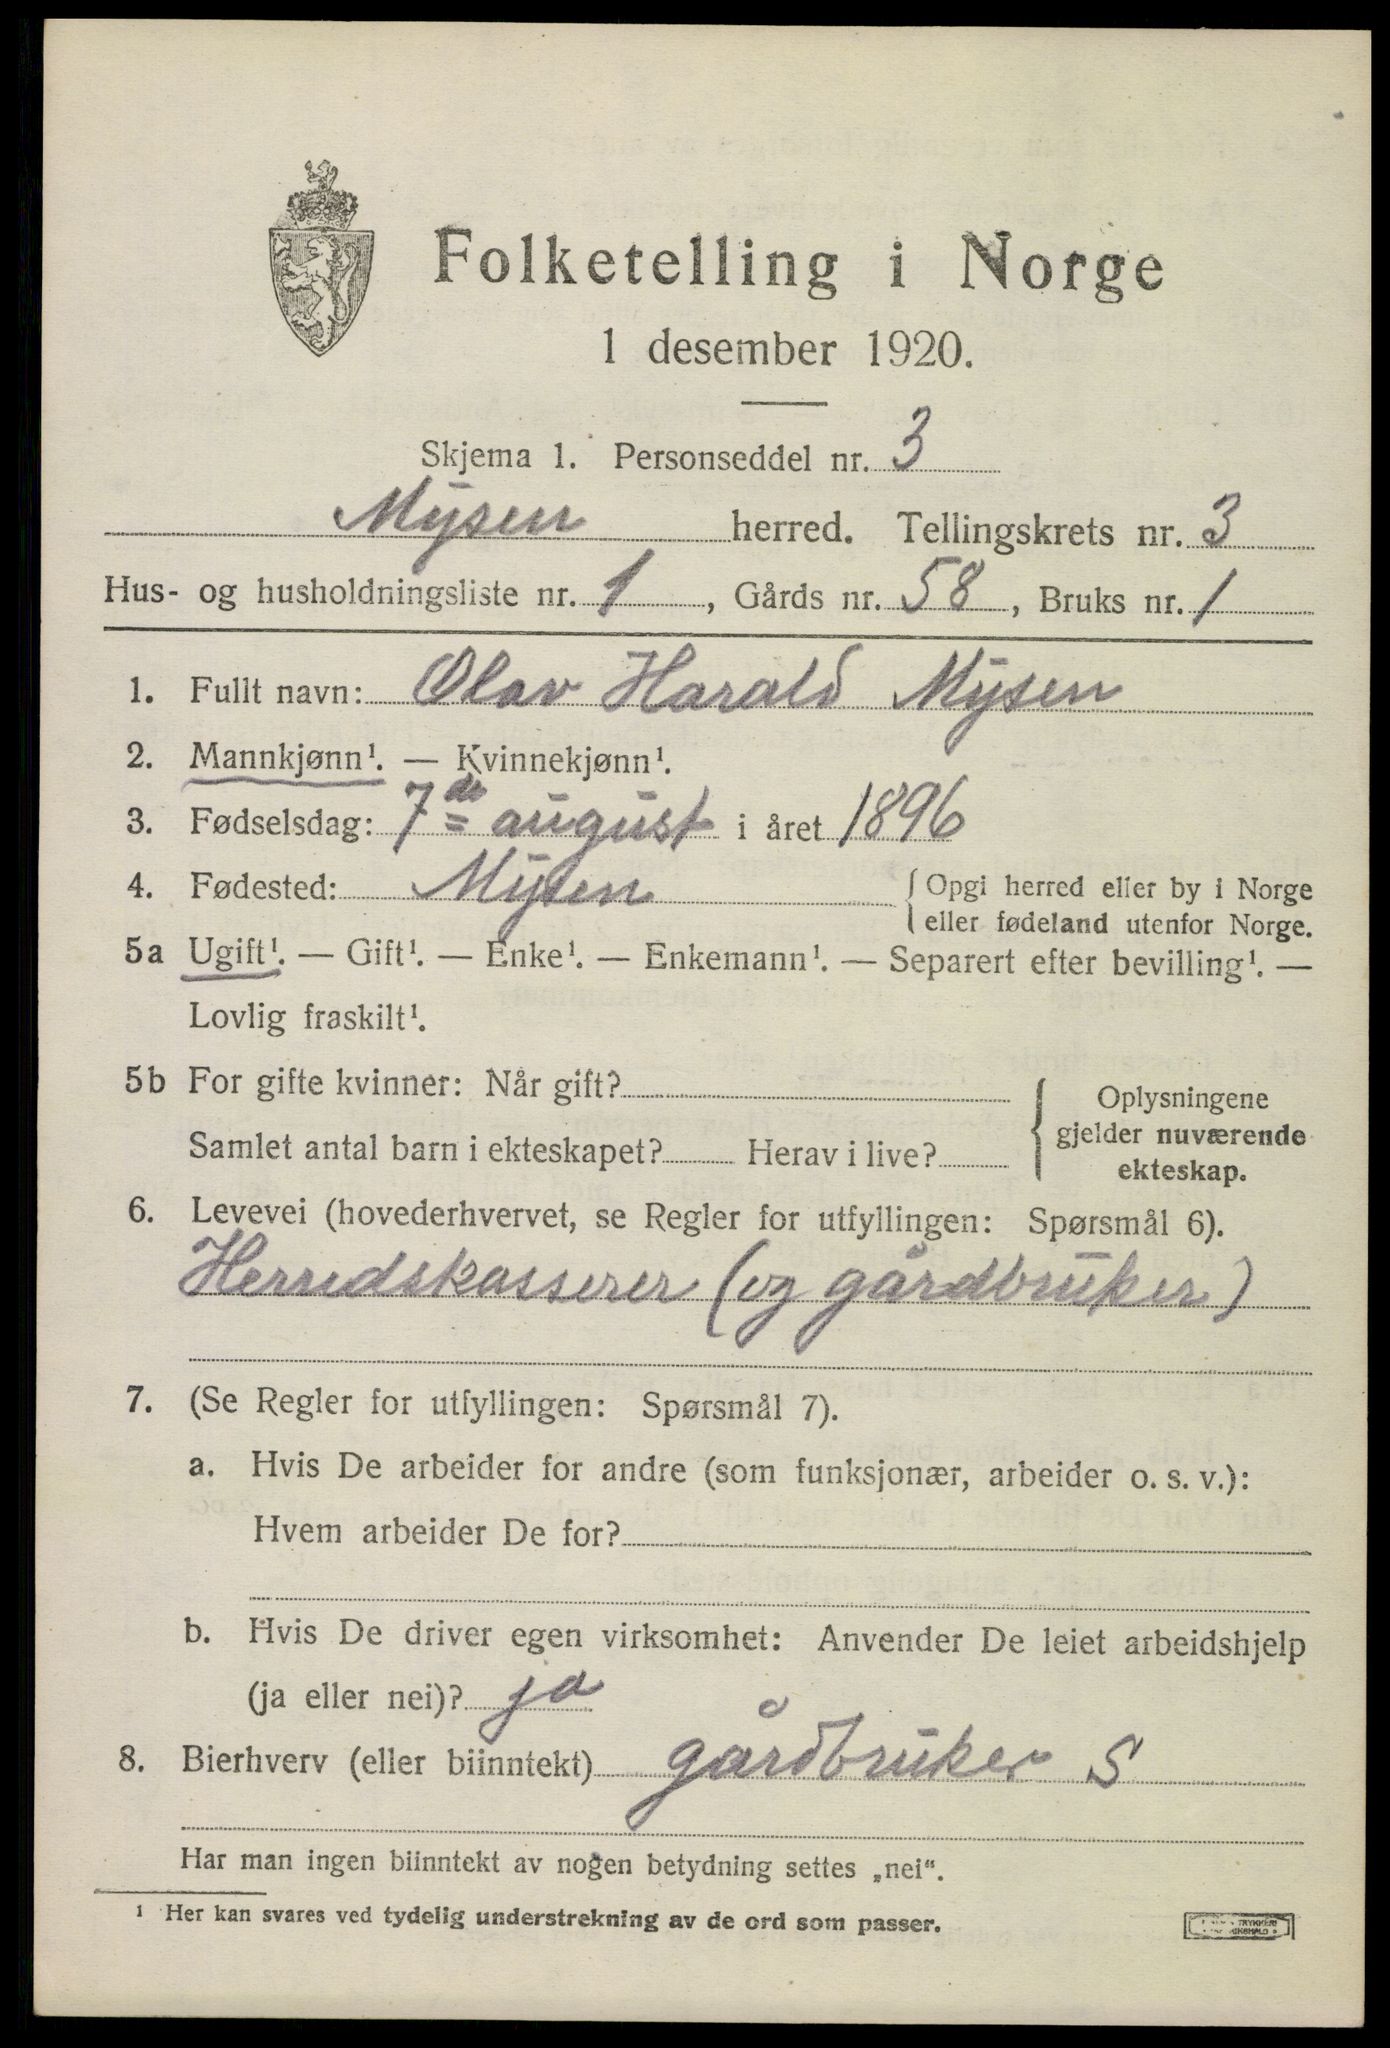 Folketelling i Norge
1 desember 1920.
Skjema 1. Personseddel nr. 3
Mysen herred. Tellingskrets nr. 3
Hus- og husholdningsliste nr. 1, Gårds nr. 58, Bruks nr. 1
1. Fullt navn: Olav Harald Mysen
2. Mannkjønn¹. — Kvinnekjønn¹.
3. Fødselsdag: 7de august i året 1896
4. Fødested: Mysen { Opgi herred eller by i Norge
eller fødeland utenfor Norge.
5a Ugift¹. — Gift¹. — Enke¹. — Enkemann¹. — Separert efter bevilling¹. —
Lovlig fraskilt¹.
5b For gifte kvinner: Når gift?
Samlet antal barn i ekteskapet? Herav i live?
{ Oplysningene
gjelder nuværende
ekteskap.
6. Levevei (hovederhvervet, se Regler for utfyllingen: Spørsmål 6).
Herredskasserer (og gårdbruker)
7. (Se Regler for utfyllingen: Spørsmål 7).
a. Hvis De arbeider for andre (som funksjonær, arbeider o. s. v.):
Hvem arbeider De for?
b. Hvis De driver egen virksomhet: Anvender De leiet arbeidshjelp
(ja eller nei)? ja
8. Bierhverv (eller biinntekt) gårdbruker S
Har man ingen biinntekt av nogen betydning settes „nei“.
1 Her kan svares ved tydelig understrekning av de ord som passer.